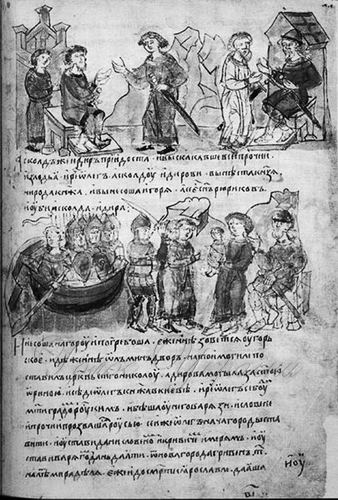 асколдъ же и диръ придоста · и выскакаше вси прочии
и лодьи · и рч҃е ѡлегъ асколдоу и дирови · вы неста кнѧзѧ
ни рода кнѧжа · и вынесоша игорѧ · а се есть сн҃ъ рюриковъ ·
и оубиша асколда и дира :
Несоша на гороу и погребоша · еже нн҃ѣ зоветсѧ оугорь
ское · идѣже нн҃ѣ ѡлъминъ дворъ · на тои могилѣ по
ставилъ црк҃вь ст҃го николоу · а дирова могыла за ст҃ою
ѡриною · и сѣде ѡлегъ кнѧжа в киевѣ · и рч҃е ѡлегъ се боуди
мт҃и градом роускимъ · и бѣша оу него варѧзи · и словене
и прочии прозвашасѧ роусью · се же ѡлегъ нача городы ста
вити · и оустави дани словеном и кривичем и мерѧмъ · и оу
стави варѧгом дань даѧти · ѿ новагорода гривенъ т҃ на
лѣто мира дѣлѧ · еже и до смр҃ти ӕрославлѧ даӕше